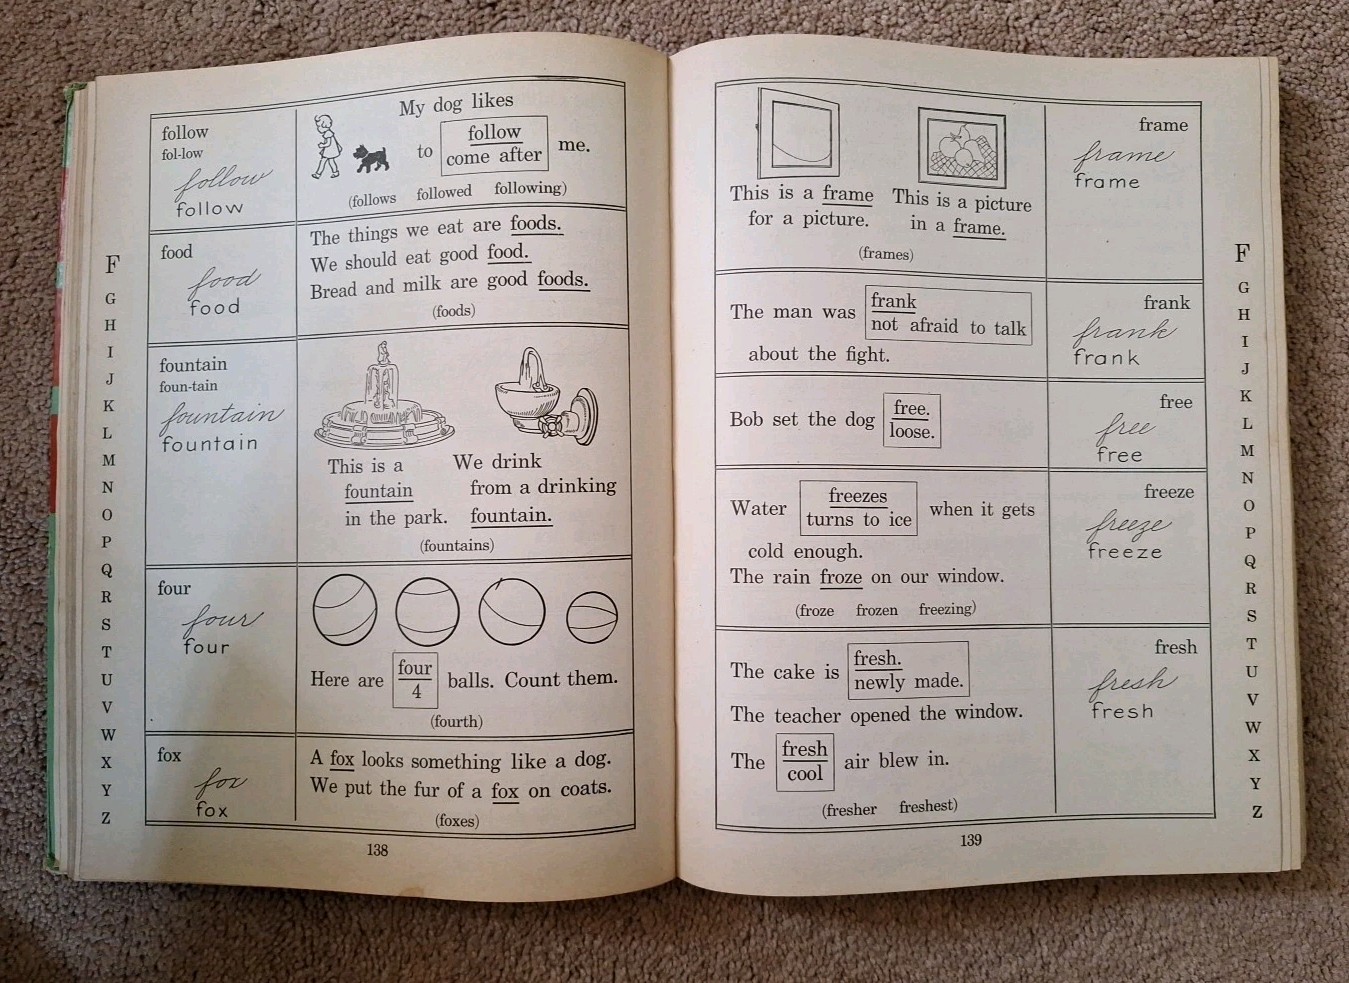 follow
fol-low
follow
follow
My dog likes
to follow me.
come after
(follows followed following)
food
food
food
The things we eat are foods.
We should eat good food.
Bread and milk are good foods.
(foods)
fountain
foun-tain
fountain
fountain
This is a
fountain
in the park.
We drink
from a drinking
fountain.
(fountains)
four
four
four
Here are four balls. Count them.
4
(fourth)
fox
fox
fox
A fox looks something like a dog.
We put the fur of a fox on coats.
(foxes)
F
G
H
I
J
K
L
M
N
O
P
Q
R
S
T
U
V
W
X
Y
Z
138
This is a frame
for a picture.
This is a picture
in a frame.
(frames)
frame
frame
frame
The man was frank
not afraid to talk
about the fight.
frank
frank
frank
Bob set the dog free.
loose.
free
free
free
Water freezes when it gets
turns to ice
cold enough.
The rain froze on our window.
(froze frozen freezing)
freeze
freeze
freeze
The cake is fresh.
newly made.
The teacher opened the window.
The fresh air blew in.
cool
(fresher freshest)
fresh
fresh
fresh
F
G
H
I
J
K
L
M
N
O
P
Q
R
S
T
U
V
W
X
Y
Z
139